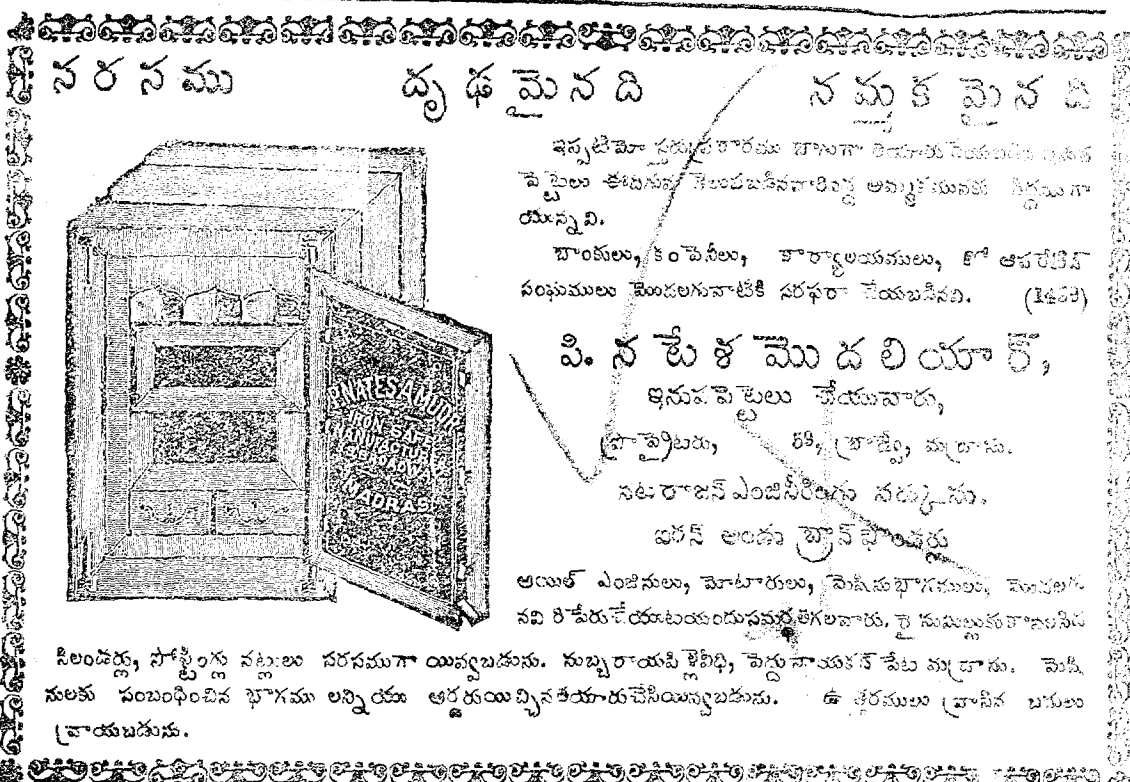 సరసము దృఢమైనది నమ్మకమైనది
ఇప్పటిమో స్తరు ప్రకారము బాగుగా తయారు చేయబడిన యినుప
పెట్టెలు ఈదిగువ తెలుపబడినవారివద్ద అమ్మకమునకు సిద్ధముగా
యున్నవి.
బాంకులు, కంపెనీలు, కార్యాలయములు, కో ఆపరేటివ్
సంఘములు మొదలగువాటికి సరఫరా చేయబడినవి. (1459)
పి. నటేళ మొదలియార్,
ఇనుప పెట్టెలు చేయువారు,
ప్రొప్రైటరు, 59, బ్రాడ్వే, మద్రాసు.
నటరాజన్ ఎంజినీరింగు వర్క్సు,
ఐరన్ అండు బ్రాస్ ఫౌండర్లు
ఆయిల్ ఎంజినులు, మోటారులు, మెషీనుభాగములు, మొదలగు
నవి రిపేరుచేయుటయందుసమర్థతగలవారు. రై సుమిల్లుకుకావలసిన
సిలండర్లు, సోఫ్టింగ్లు నట్టులు సరసముగా యివ్వబడును. సుబ్బరాయపి ళ్లైవీధి, పెద్దునాయకన్ పేట మద్రాసు. మెషీ
నులకు సంబంధించిన భాగము లన్నియు ఆర్డరుయిచ్చినతయారుచేసియివ్వబడును. ఉ త్తరములు వ్రాసిన బదులు
వ్రాయబడును.
P. NATESA MUDR
IRON SAFE
MANUFACTUR
BROADWAY
MADRAS